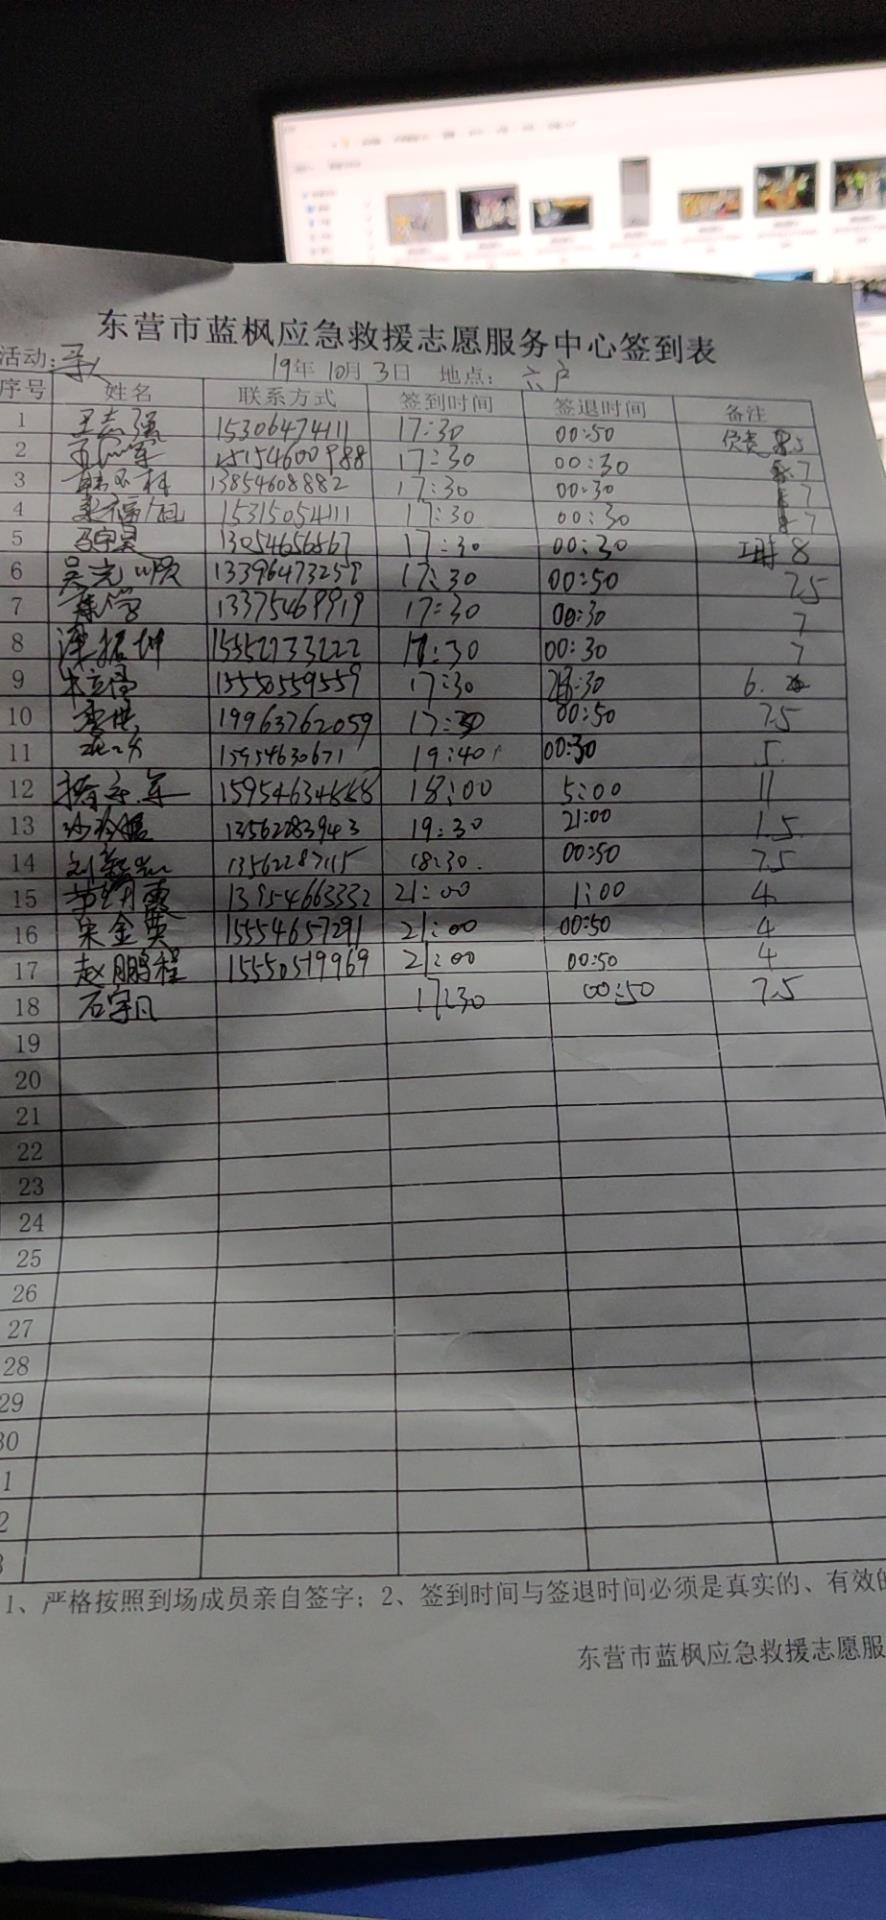 东营市蓝枫应急救援志愿服务中心签到表
活动: 寻人 19年10月3日 地点: 六户
序号 姓名 联系方式 签到时间 签退时间 备注
1 王志强 15306474111 17:30 00:50 负责 8.5
2 15154600988 17:30 00:30 7
3 13854608882 17:30 00:30 7
4 15315054111 17:30 00:30 7
5 13054656567 17:30 00:30 8
6 吴光顺 13396473257 17:30 00:50 7.5
7 13375469919 17:30 00:30 7
8 15552733222 17:30 00:30 7
9 15550559559 17:30 23:30 6.
10 19963762059 17:30 00:50 7.5
11 15954630671 19:40 00:30 5.
12 18:00 5:00 11
13 13562283943 19:30 21:00 1.5
14 13562287115 18:30. 00:50 7.5
15 13954663332 21:00 1:00 4
16 宋金英 15554657291 21:00 00:50 4
17 赵鹏程 15550519969 21:00 00:50 4
18 石宇凡 17:30 00:50 7.5
19
20
21
22
23
24
25
26
27
28
29
30
1
2
3
1、严格按照到场成员亲自签字；2、签到时间与签退时间必须是真实的、有效的
东营市蓝枫应急救援志愿服